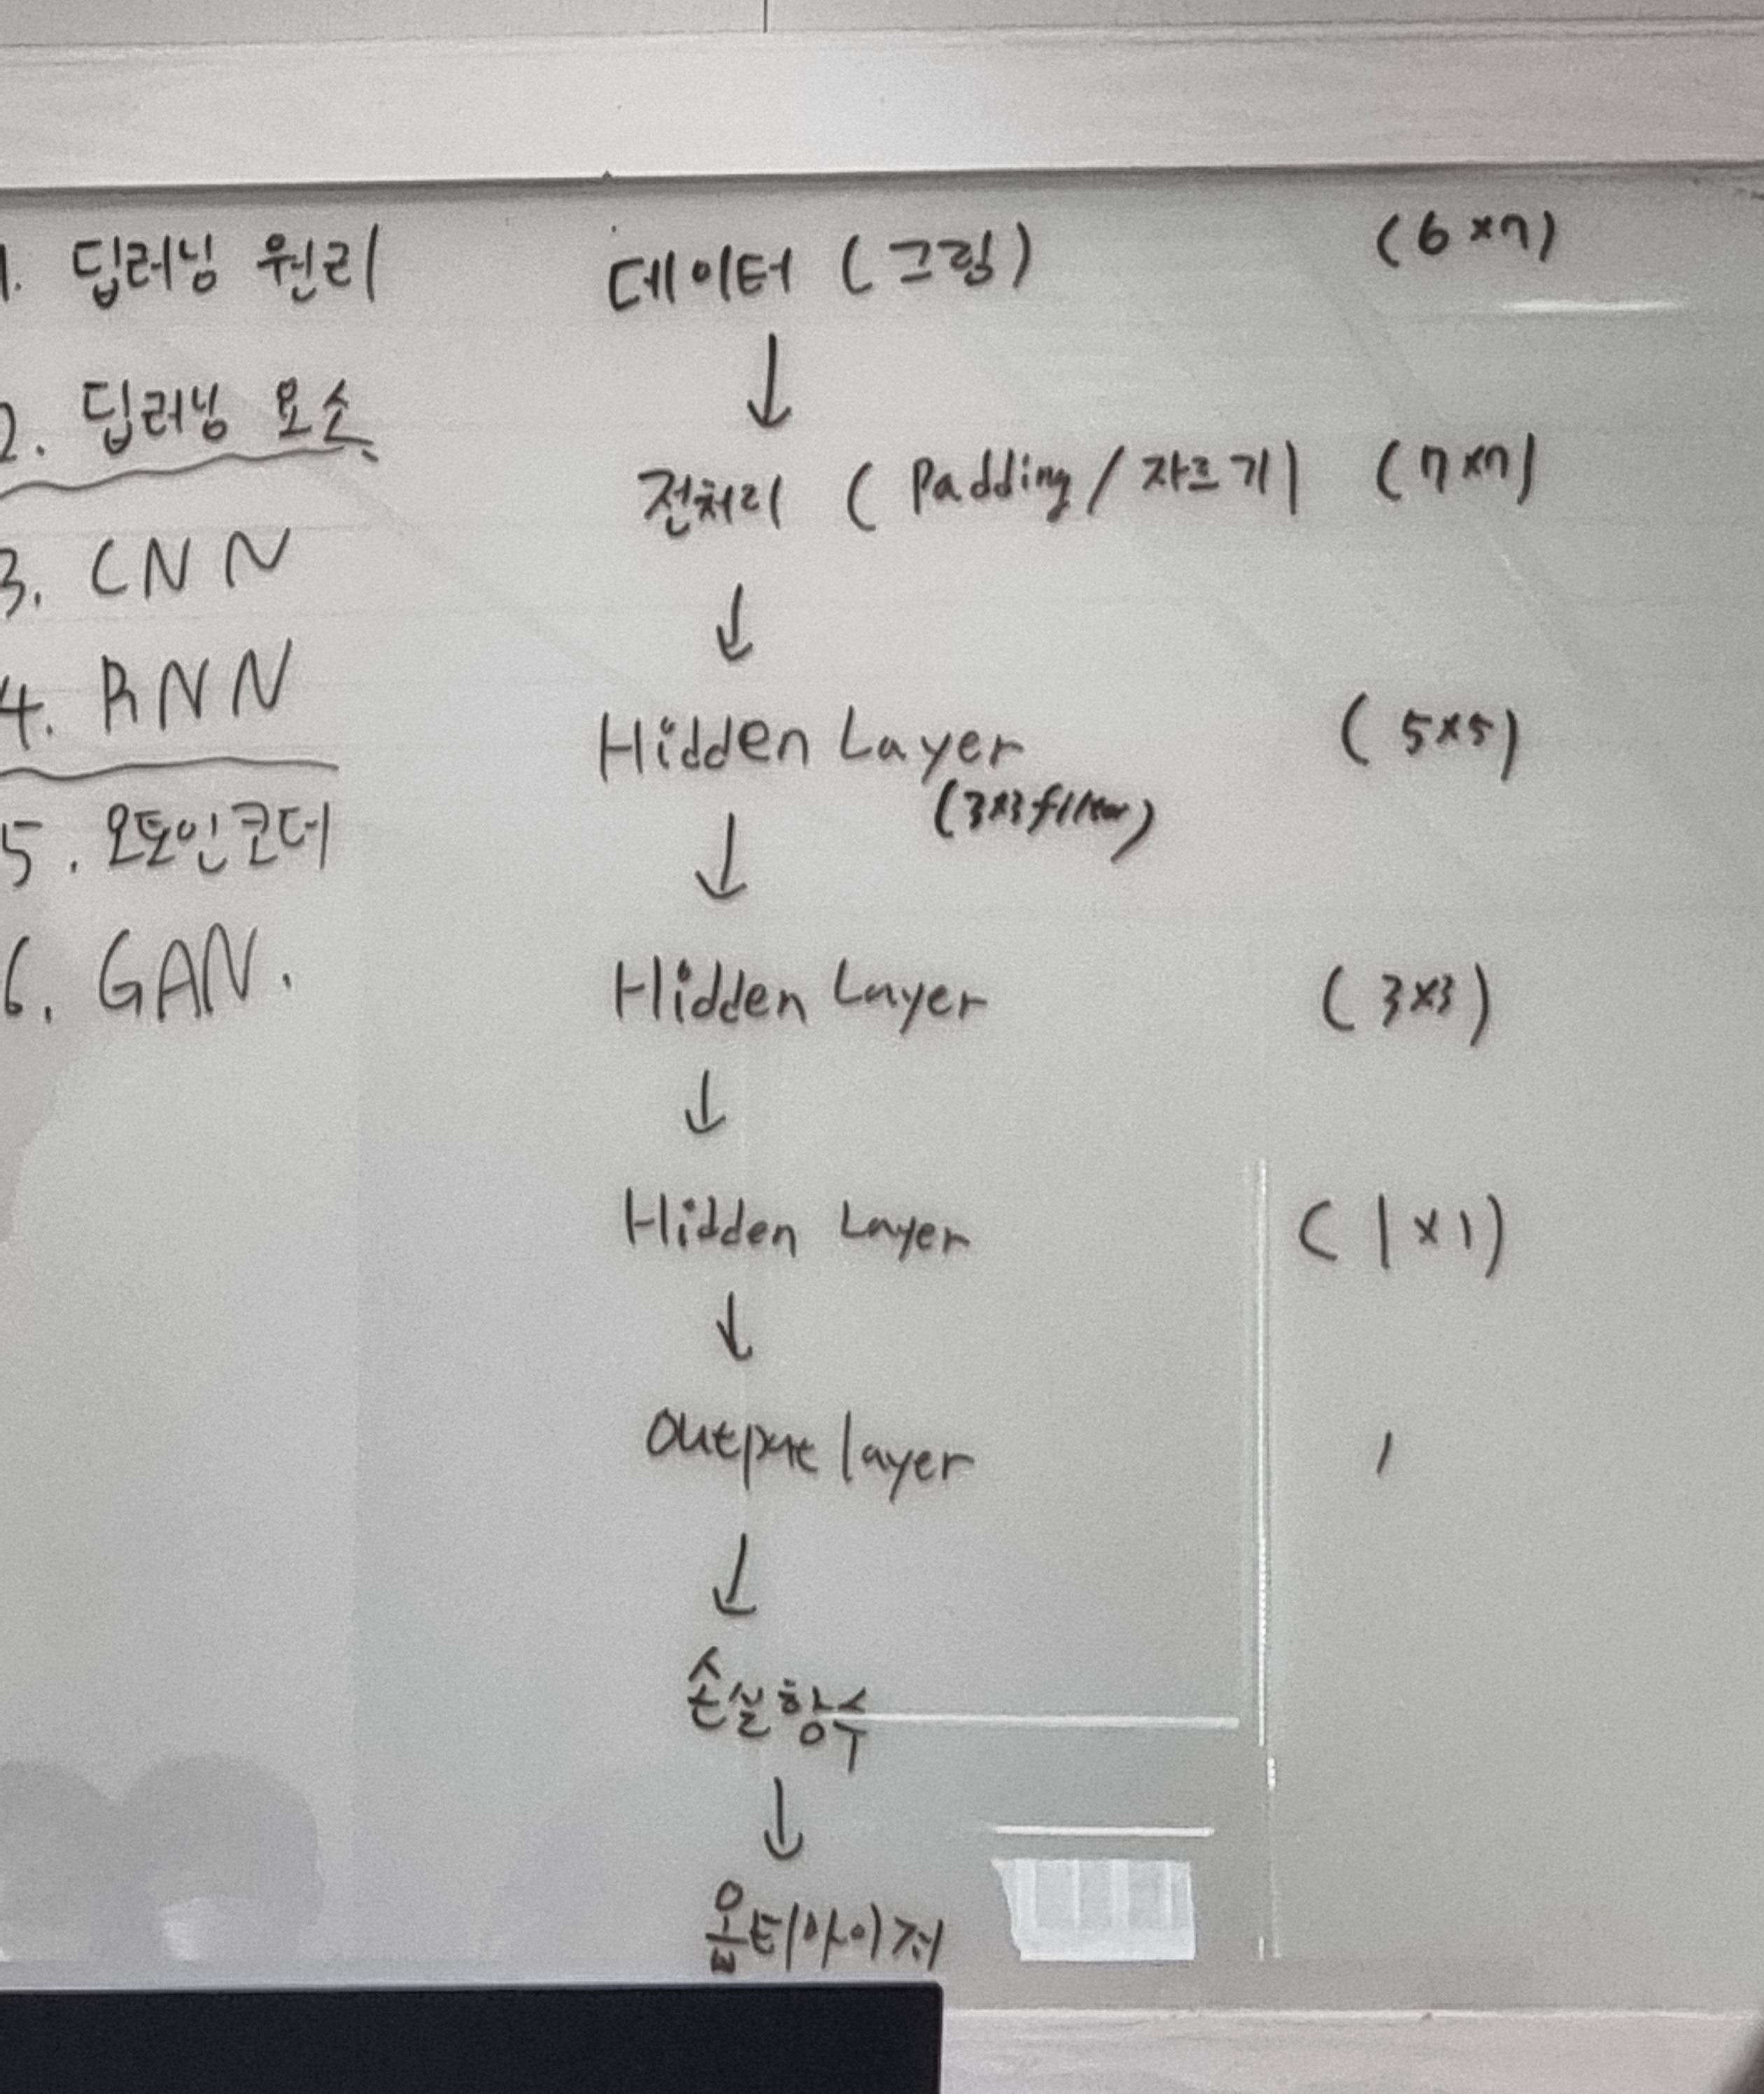 1. 딥러닝 원리
2. 딥러닝 요소
3. CNN
4. RNN
5. 오토인코더
6. GAN.
데이터 (그림) (6×7)
↓
전처리 (Padding/자르기) (7×7)
↓
Hidden Layer (5×5)
(3×3 filter)
↓
Hidden Layer (3×3)
↓
Hidden Layer (1×1)
↓
Output layer 1
↓
손실함수
↓
옵티마이저